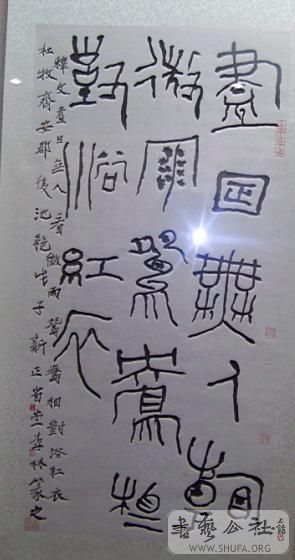 盡日無人看
微雨鴛鴦相
對浴紅衣
釋文盡日無人看微雨鴛鴦相對浴紅衣
杜牧齊安郡後池絕 戊子新正 篆之
書藝公社
WWW.SHUFA.ORG